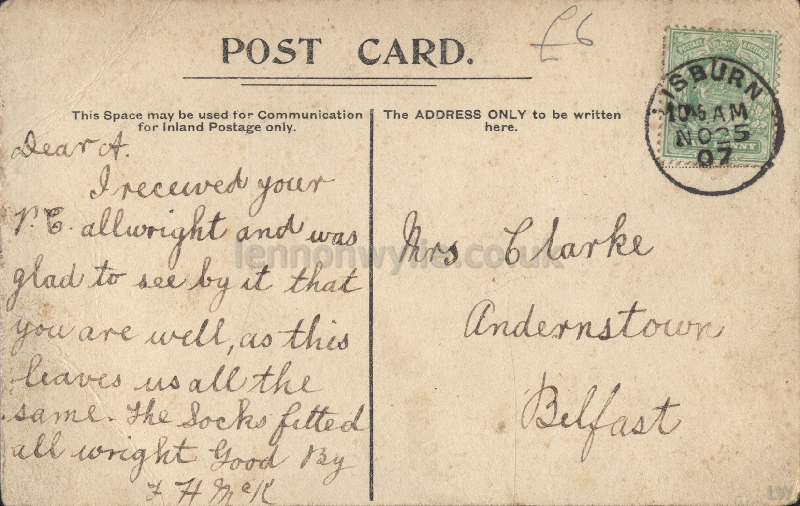 £6
POST CARD.
This Space may be used for Communication
for Inland Postage only.
The ADDRESS ONLY to be written
here.
LISBURN
10 15 AM
NO 25
07
PENNY
Dear A.
I received your
P.C. allwright and was
glad to see by it that
you are well, as this
leaves us all the
same. The Socks fitted
all wright Good By
F H McK
Mrs Clarke
Andernstown
Belfast
lennonwylie.co.uk
LW